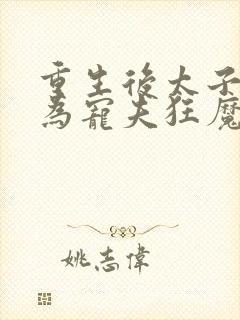 重生後太子
為寵夫狂魔
姚志偉